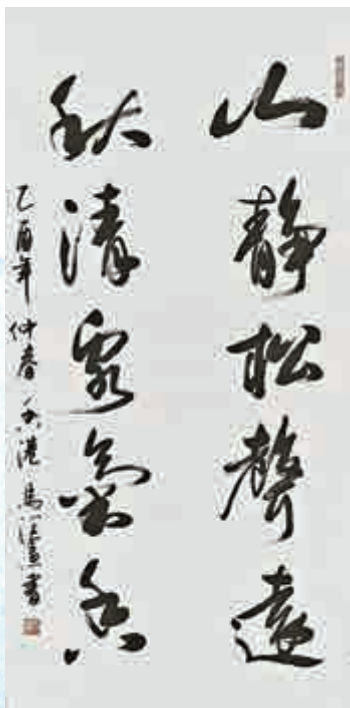 山静松聲遠
秋清泉氣香
乙酉年仲春 香港 馬 書